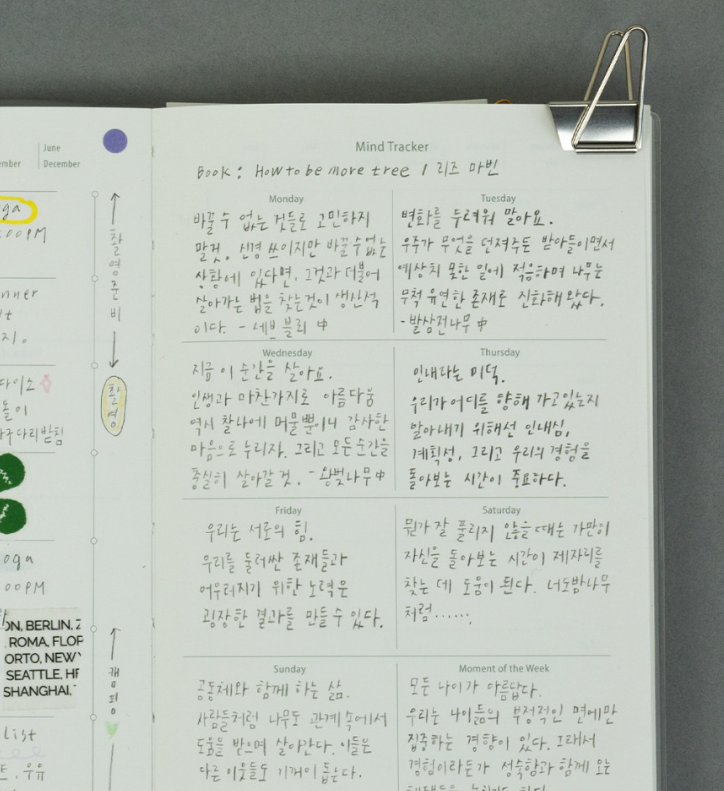 June
December
ember
oga
:00PM
nner
지.
다이소
돌이
구다리받침
oga
00PM
ON, BERLIN, Z
ROMA, FLOP
ORTO, NEW
SEATTLE, HE
SHANGHAI,
list
우유
촬영준비
촬영
캠핑
Mind Tracker
Book : How to be more tree / 리즈 마빈
Monday
바꿀 수 없는 것들로 고민하지
말것. 신경 쓰이지만 바꿀 수 없는
상황에 있다면, 그것과 더불어
살아가는 법을 찾는것이 생산적
이다. - 세브 블리 中
Tuesday
변화를 두려워 말아요.
우주가 무엇을 던져주든 받아들이면서
예상치 못한 일에 적응하며 나무는
무척 유연한 존재로 진화해 왔다.
- 발삼전나무 中
Wednesday
지금 이 순간을 살아요.
인생과 마찬가지로 아름다움
역시 찰나에 머물뿐이니 감사한
마음으로 누리자. 그리고 모든순간을
충실히 살아갈 것. - 왕벚나무 中
Thursday
인내라는 미덕.
우리가 어디를 향해 가고있는지
알아내기 위해선 인내심,
계획성, 그리고 우리의 경험을
돌아보는 시간이 중요하다.
Friday
우리는 서로의 힘.
우리를 둘러싼 존재들과
어우러지기 위한 노력은
굉장한 결과를 만들 수 있다.
Saturday
뭔가 잘 풀리지 않을 때는 가만히
자신을 돌아보는 시간이 제자리를
찾는 데 도움이 된다. 너도밤나무
처럼......
Sunday
공동체와 함께 하는 삶.
사람들처럼 나무도 관계 속에서
도움을 받으며 살아간다. 이들은
다른 이웃들도 기꺼이 돕는다.
Moment of the Week
모든 나이가 아름답다.
우리는 나이듦의 부정적인 면에만
집중하는 경향이 있다. 그래서
경험이라든가 성숙함과 함께 오는